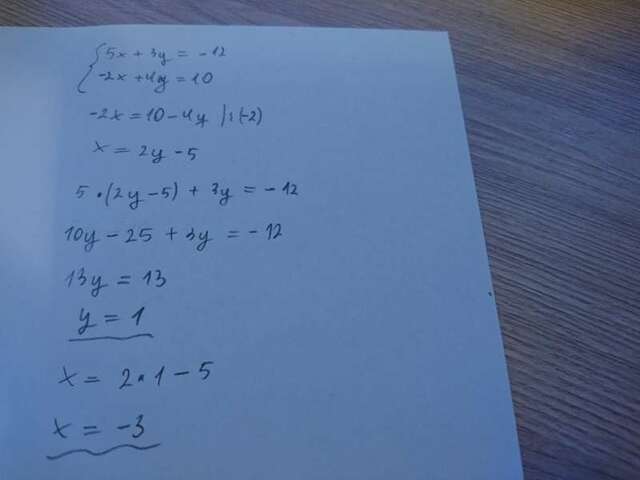 5x + 3y = -12
-2x + 4y = 10
-2x = 10 - 4y |:(-2)
x = 2y - 5
5 · (2y - 5) + 3y = -12
10y - 25 + 3y = -12
13y = 13
y = 1
x = 2 · 1 - 5
x = -3